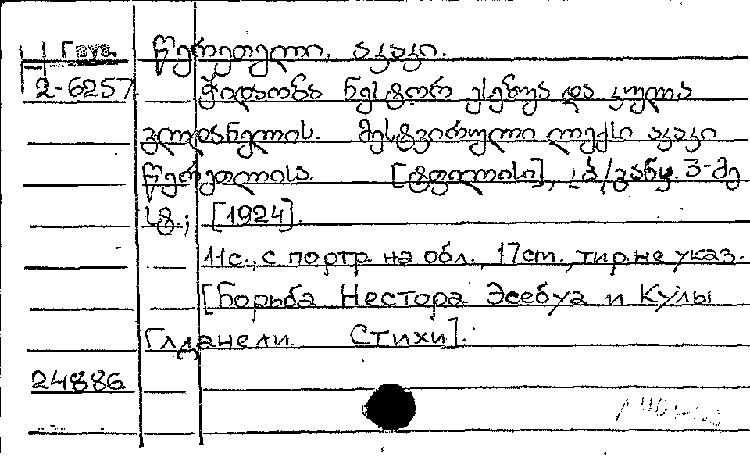 Груз. წერეთელი, აკაკი.
2-6257 ჭიდაობა ნესტორ ესებუა და კულა
გლდანელის. მესტვირული ლექსი აკაკი
წერეთლისა. [ტფილისი], ს/განყ. 3-მე
სტ., [1924].
11с., с портр. на обл., 17cm., тир. не указ.
[Борьба Нестора Эсебуа и Кулы
Глданели Стихи].
24886